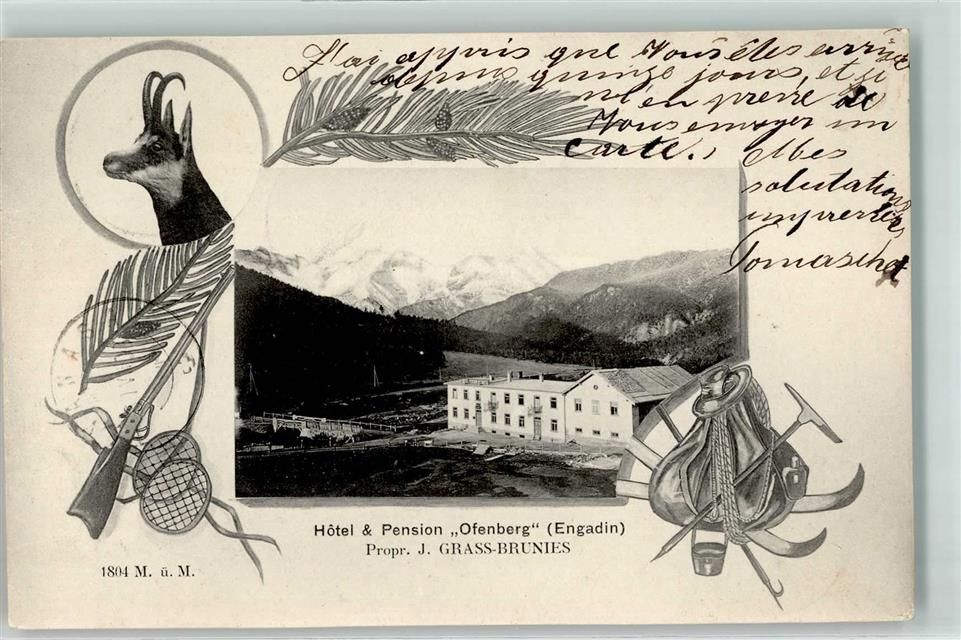 J'ai appris que Vous êtes arrivé
depuis quinze jours, et je
m'en presse de
Vous envoyer un
Carte.
salutations
Hôtel & Pension „Ofenberg“ (Engadin)
Propr. J. GRASS-BRUNIES
1804 M. ü. M.